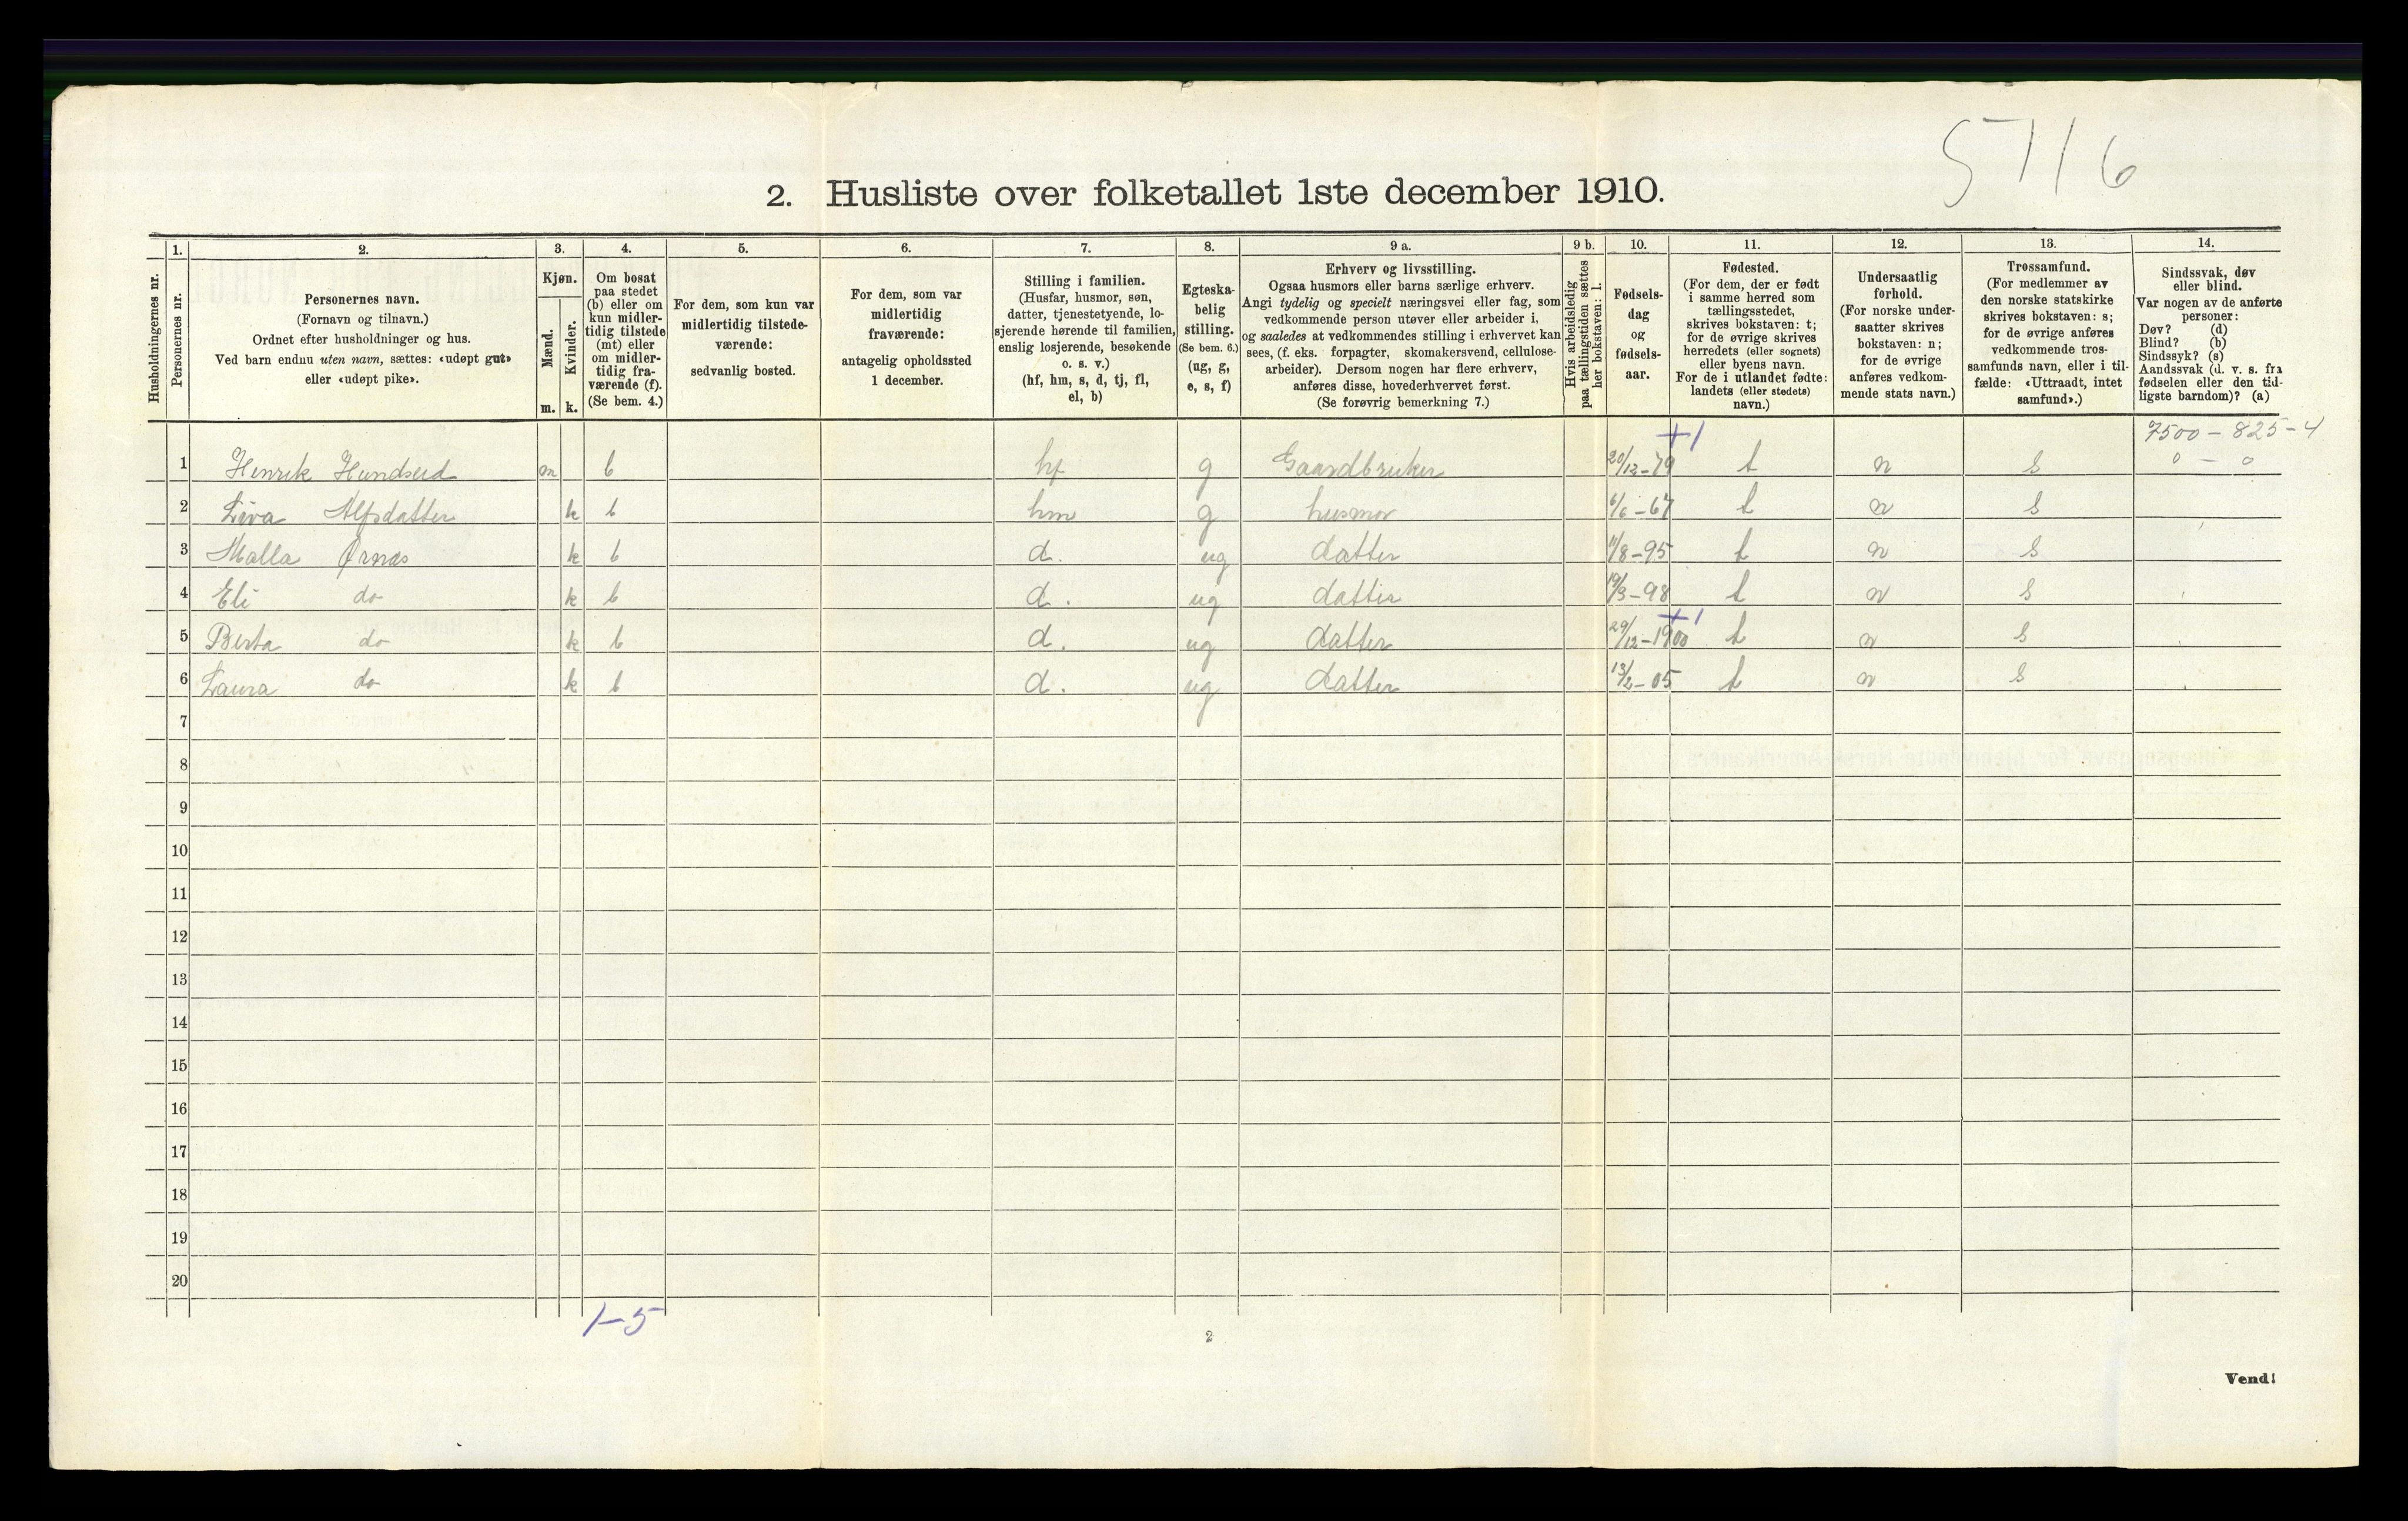 57/6
2. Husliste over folketallet 1ste december 1910.
Husholdningernes nr.
1.
Personernes nr.
2.
Personernes navn.
(Fornavn og tilnavn.)
Ordnet efter husholdninger og hus.
Ved barn endnu uten navn, sættes: «udøpt gut»
eller «udøpt pike».
3.
Kjøn.
Mænd.
m.
Kvinder.
k.
4.
Om bosat
paa stedet
(b) eller om
kun midler-
tidig tilstede
(mt) eller
om midler-
tidig fra-
værende (f).
(Se bem. 4.)
5.
For dem, som kun var
midlertidig tilstede-
værende:
sedvanlig bosted.
6.
For dem, som var
midlertidig
fraværende:
antagelig opholdssted
1 december.
7.
Stilling i familien.
(Husfar, husmor, søn,
datter, tjenestetyende, lo-
sjerende hørende til familien,
enslig losjerende, besøkende
o. s. v.)
(hf, hm, s, d, tj, fl,
el, b)
8.
Egteska-
belig
stilling.
(Se bem. 6.)
(ug, g,
e, s, f)
9 a.
Erhverv og livsstilling.
Ogsaa husmors eller barns særlige erhverv.
Angi tydelig og specielt næringsvei eller fag, som
vedkommende person utøver eller arbeider i,
og saaledes at vedkommendes stilling i erhvervet kan
sees, (f. eks. forpagter, skomakersvend, cellulose-
arbeider). Dersom nogen har flere erhverv,
anføres disse, hovederhvervet først.
(Se forøvrig bemerkning 7.)
9 b.
Hvis arbeidsledig
paa tællingstiden sættes
her bokstaven: l.
10.
Fødsels-
dag
og
fødsels-
aar.
11.
Fødested.
(For dem, der er født
i samme herred som
tællingsstedet,
skrives bokstaven: t;
for de øvrige skrives
herredets (eller sognets)
eller byens navn.
For de i utlandet fødte:
landets (eller stedets)
navn.)
12.
Undersaatlig
forhold.
(For norske under-
saatter skrives
bokstaven: n;
for de øvrige
anføres vedkom-
mende stats navn.)
13.
Trossamfund.
(For medlemmer av
den norske statskirke
skrives bokstaven: s;
for de øvrige anføres
vedkommende tros-
samfunds navn, eller i til-
fælde: «Uttraadt, intet
samfund».)
14.
Sindssvak, døv
eller blind.
Var nogen av de anførte
personer:
Døv? (d)
Blind? (b)
Sindssyk? (s)
Aandssvak (d. v. s. fra
fødselen eller den tid-
ligste barndom)? (a)
+1 7500 – 825 – 4
0 – 0
1 Henrik Hundseid m b hf g Gaardbruker 20/12-79 t n s
2 Siva Alfsdatter k b hm g husmor 6/6-67 t n s
3 Malla Ørnæs k b d. ug datter 11/8-95 t n s
4 Eli do k b d. ug datter 19/3-98 t n s
+1
5 Berta do k b d. ug datter 29/12-1900 t n s
6 Laura do k b d. ug datter 13/2-05 t n s
7
8
9
10
11
12
13
14
15
16
17
18
19
20
1–5
2
Vend!